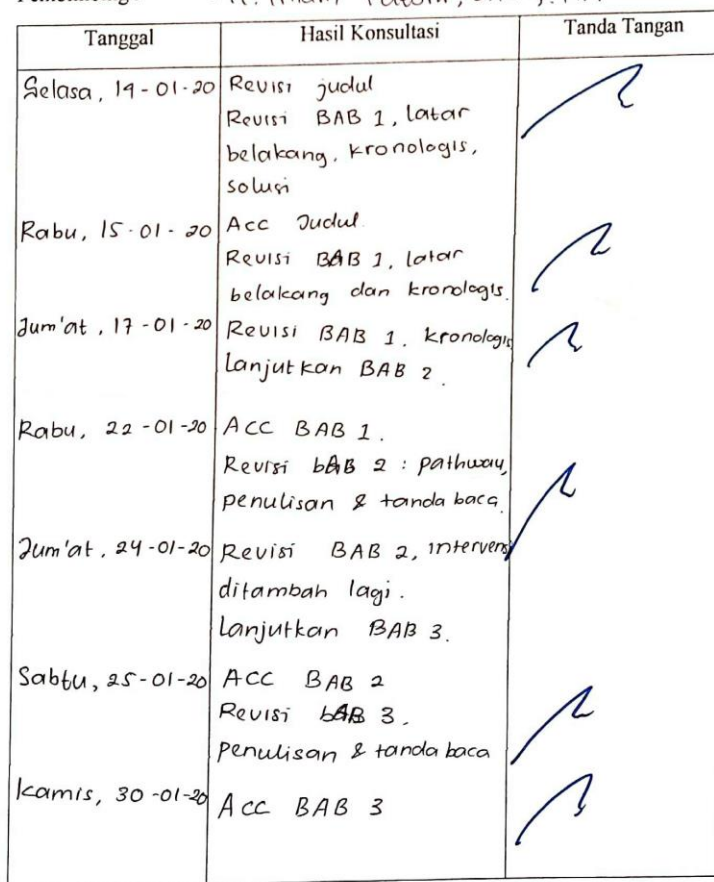 Tanggal Hasil Konsultasi Tanda Tangan
Selasa, 14-01-20 Revisi judul
Revisi BAB 1, latar
belakang, kronologis,
solusi
Rabu, 15-01-20 Acc Judul
Revisi BAB 1, latar
belakang dan kronologis.
Jum'at, 17-01-20 Revisi BAB 1. kronologis
Lanjutkan BAB 2.
Rabu, 22-01-20 Acc BAB 1.
Revisi bAB 2 : pathway,
penulisan & tanda baca.
Jum'at, 24-01-20 Revisi BAB 2, intervensi
ditambah lagi.
Lanjutkan BAB 3.
Sabtu, 25-01-20 ACC BAB 2
Revisi bAB 3.
penulisan & tanda baca
Kamis, 30-01-20 Acc BAB 3